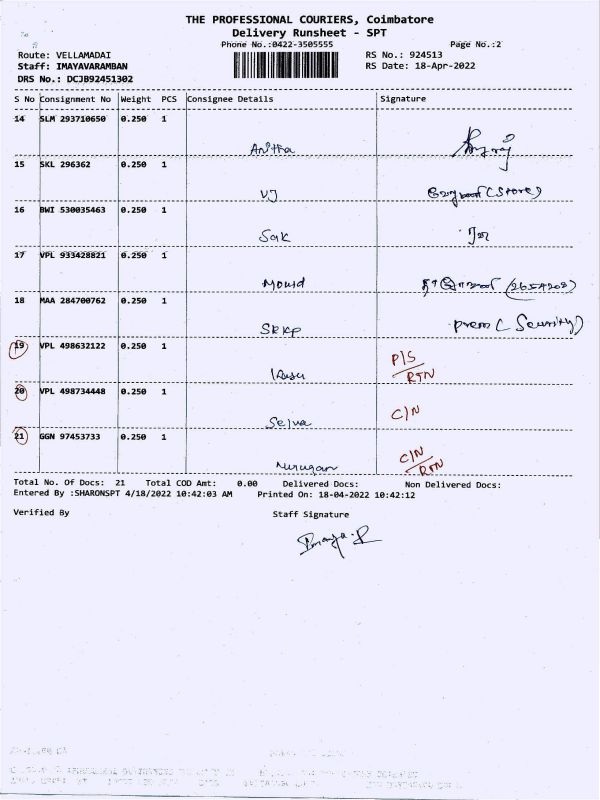 THE PROFESSIONAL COURIERS, Coimbatore
Delivery Runsheet - SPT
Phone No.:0422-3505555 Page No.:2
Route: VELLAMADAI RS No.: 924513
Staff: IMAYAVARAMBAN RS Date: 18-Apr-2022
DRS No.: DCJB92451302
S No Consignment No Weight PCS Consignee Details Signature
14 SLM 293710650 0.250 1
Anitha
15 SKL 296362 0.250 1
VJ (Store)
16 BWI 530035463 0.250 1
Sak
17 VPL 933428821 0.250 1
Mould
18 MAA 284700762 0.250 1
SKKP prem (Security)
19 VPL 498632122 0.250 1 P/S
RTN
20 VPL 498734448 0.250 1 C/N
Selva
21 GGN 97453733 0.250 1 C/N
Murugan RTN
Total No. Of Docs: 21 Total COD Amt: 0.00 Delivered Docs: Non Delivered Docs:
Entered By :SHARONSPT 4/18/2022 10:42:03 AM Printed On: 18-04-2022 10:42:12
Verified By Staff Signature